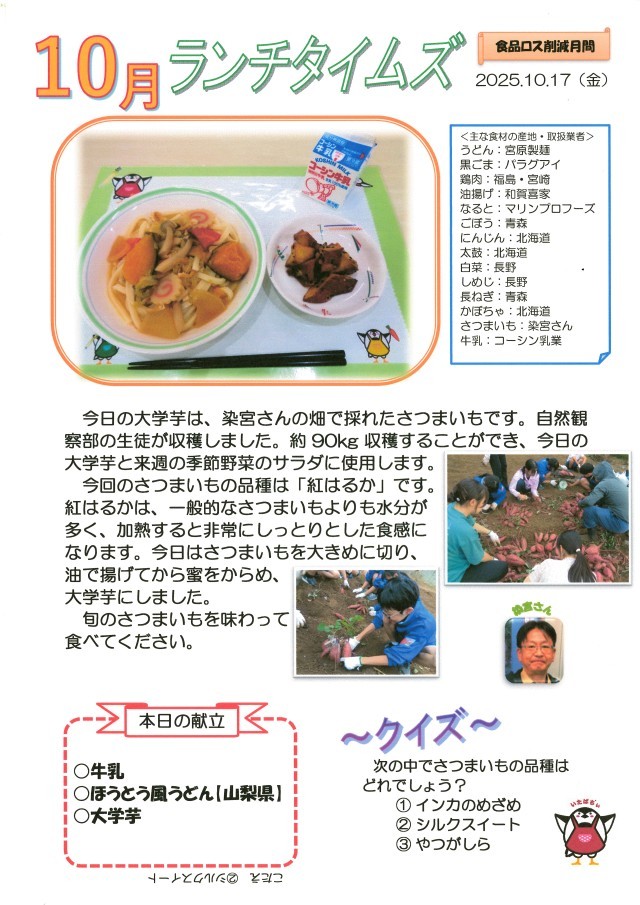 10月 ランチタイムズ
食品ロス削減月間
2025.10.17（金）
＜主な食材の産地・取扱業者＞
うどん：宮原製麺
黒ごま：パラグアイ
鶏肉：福島・宮崎
油揚げ：和賀喜家
なると：マリンプロフーズ
ごぼう：青森
にんじん：北海道
太鼓：北海道
白菜：長野
しめじ：長野
長ねぎ：青森
かぼちゃ：北海道
さつまいも：染宮さん
牛乳：コーシン乳業
コーシン
牛乳
KOSHIN MILK
コーシン牛乳
今日の大学芋は、染宮さんの畑で採れたさつまいもです。自然観
察部の生徒が収穫しました。約90kg収穫することができ、今日の
大学芋と来週の季節野菜のサラダに使用します。
今回のさつまいもの品種は「紅はるか」です。
紅はるかは、一般的なさつまいもよりも水分が
多く、加熱すると非常にしっとりとした食感に
なります。今日はさつまいもを大きめに切り、
油で揚げてから蜜をからめ、
大学芋にしました。
旬のさつまいもを味わって
食べてください。
染宮さん
本日の献立
○牛乳
○ほうとう風うどん【山梨県】
○大学芋
～クイズ～
次の中でさつまいもの品種は
どれでしょう？
① インカのめざめ
② シルクスイート
③ やつがしら
こたえ ②シルクスイート